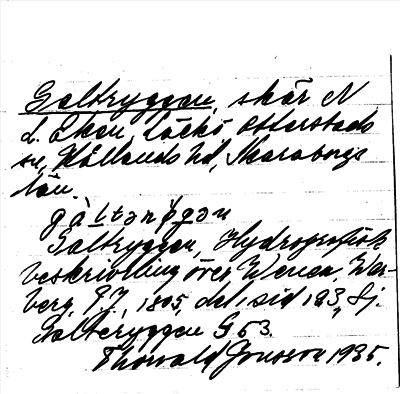 Galtryggen, skär N
d. Ekens, Läckö Otterstads
sn, Kållands hd, Skaraborgs
län.
gàltənỳgən
Galtryggen, Hydrografisk
beskrivning över Wenern, War-
berg, P. J., 1805, del. 1 sid 183, Sj.
Galteryggen G 53.
Thorvald Jonsson 1935.